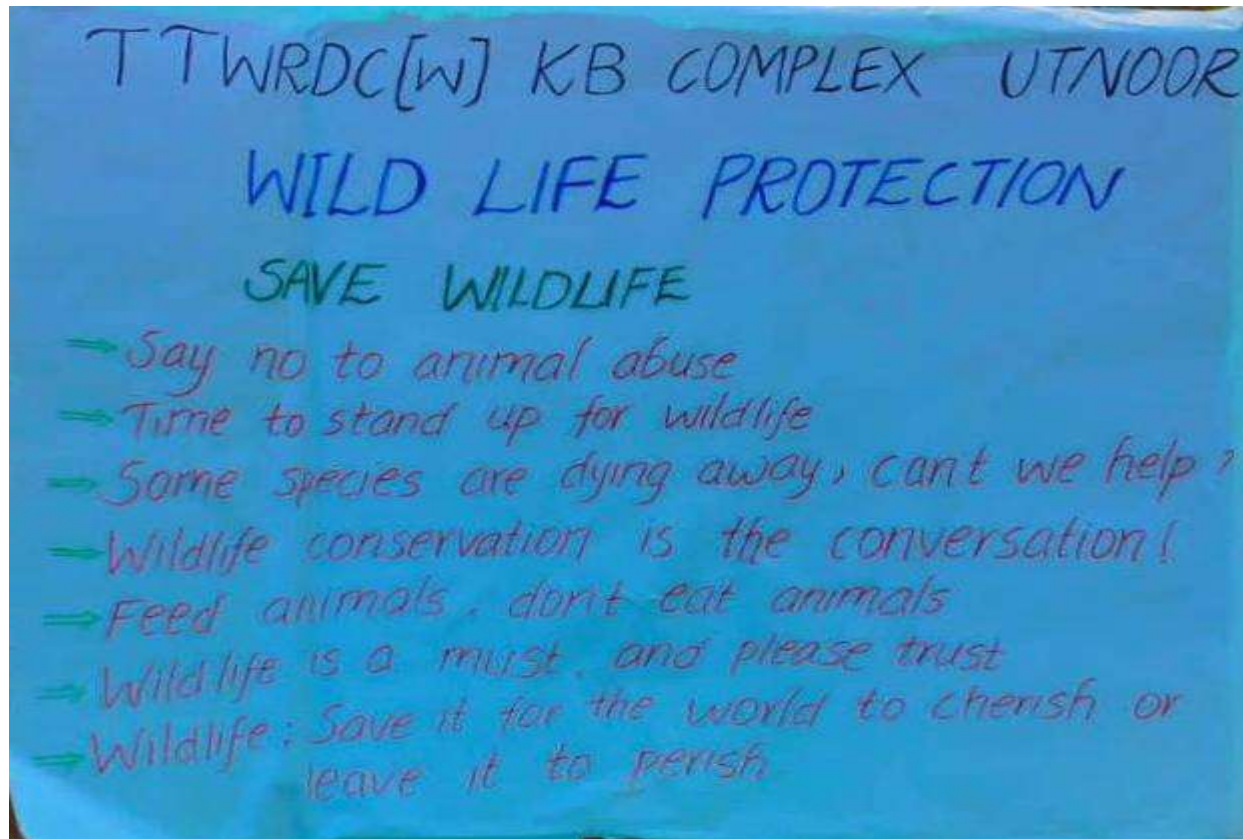 TTWRDC[W] KB COMPLEX UTNOOR
WILD LIFE PROTECTION
SAVE WILDLIFE
⇒ Say no to animal abuse
⇒ Time to stand up for wildlife
⇒ Some species are dying away, can't we help?
⇒ Wildlife conservation is the conversation!
⇒ Feed animals. don't eat animals
⇒ Wildlife is a must. and please trust
⇒ Wildlife: Save it for the world to cherish or
leave it to perish